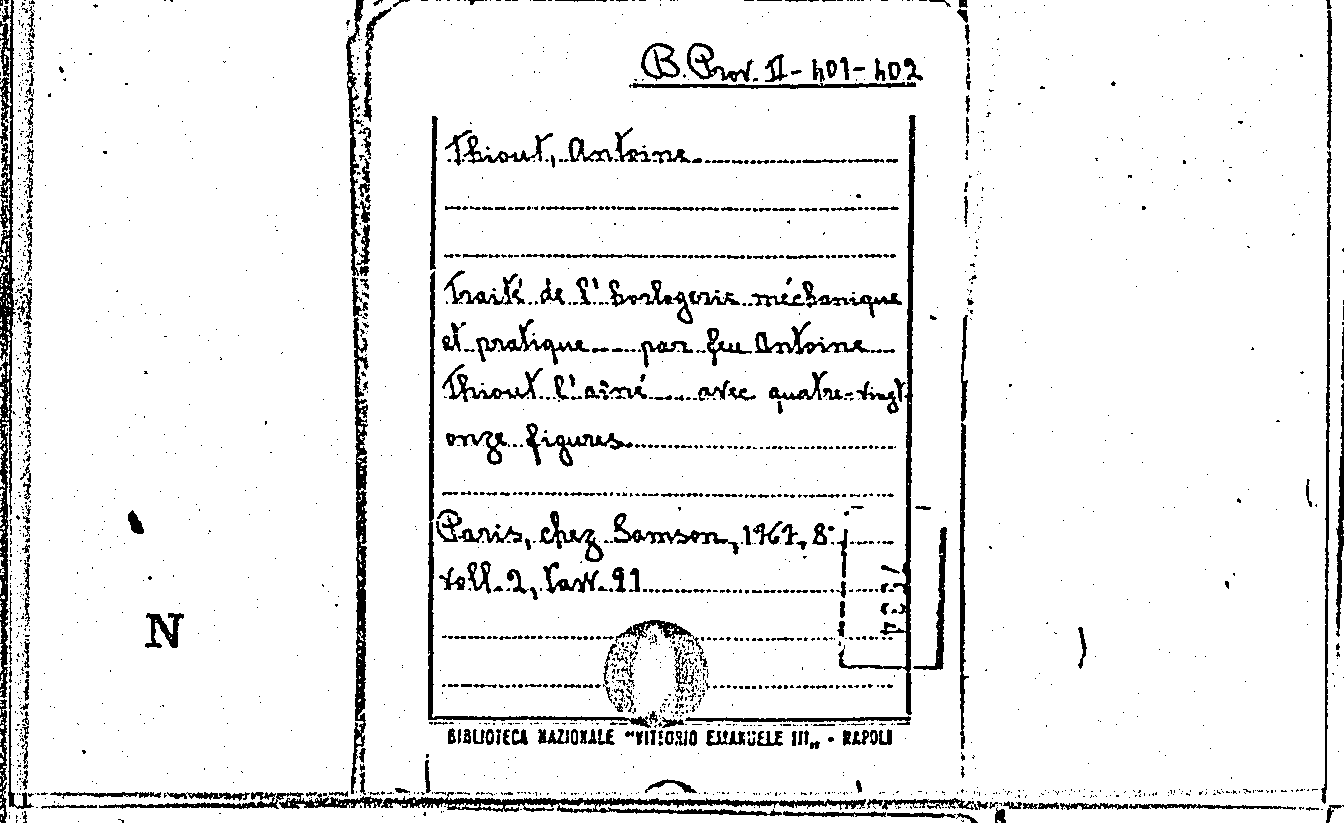 B. Prov. II - 401-402
Thiout, Antoine
Traité de l'horlogerie méchanique
et pratique.... par feu Antoine
Thiout l'aîné.... avec quatre-vingt
onze figures
Paris, chez Samson, 1767, 8°
voll. 2, tavv. 91
N
BIBLIOTECA NAZIONALE "VITTORIO EMANUELE III„ - NAPOLI